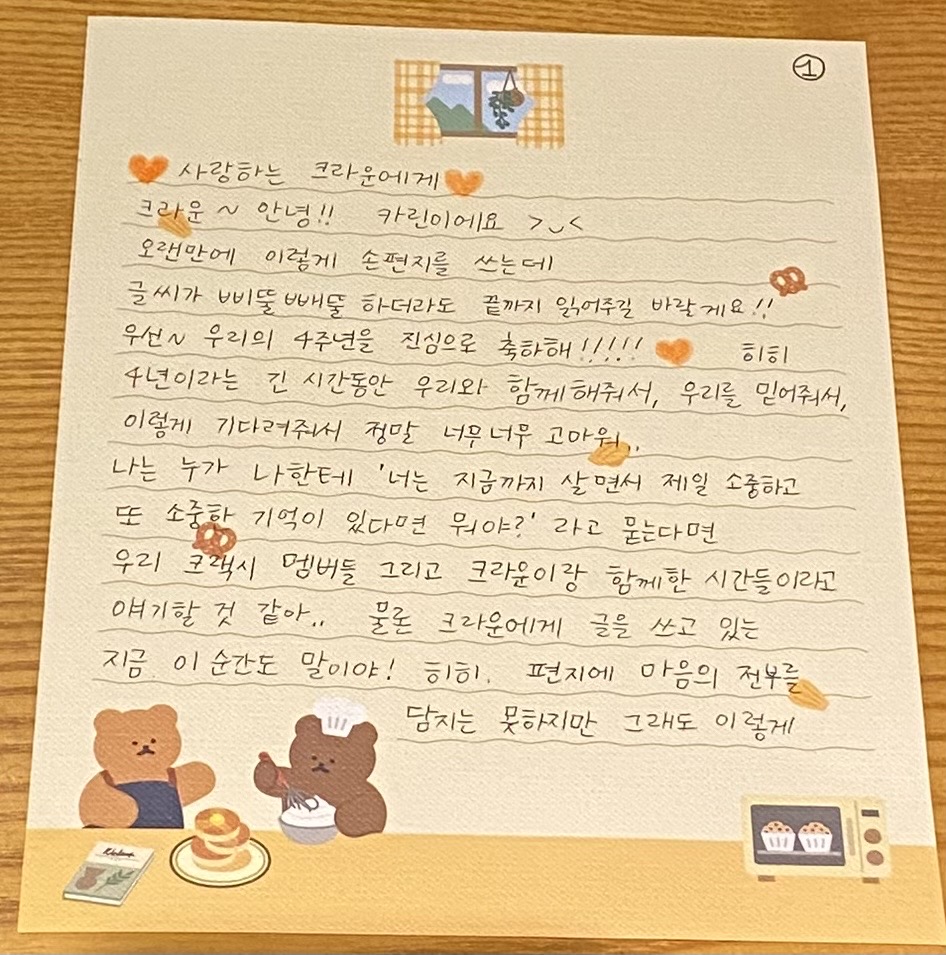 ①
사랑하는 크라운에게
크라운 ~ 안녕!! 카린이에요 >◡<
오랜만에 이렇게 손편지를 쓰는데
글씨가 삐뚤빼뚤 하더라도 끝까지 읽어주길 바랄게요!!
우선~ 우리의 4주년을 진심으로 축하해!!!!!! 히히
4년이라는 긴 시간동안 우리와 함께해줘서, 우리를 믿어줘서,
이렇게 기다려줘서 정말 너무너무 고마워..
나는 누가 나한테 '너는 지금까지 살면서 제일 소중하고
또 소중한 기억이 있다면 뭐야?' 라고 묻는다면
우리 크랙시 멤버들 그리고 크라운이랑 함께한 시간들이라고
얘기할 것 같아.. 물론 크라운에게 글을 쓰고 있는
지금 이 순간도 말이야! 히히. 편지에 마음의 전부를
담지는 못하지만 그래도 이렇게